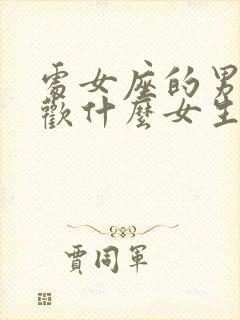 處女座的男
歡什麼女生
賈同軍